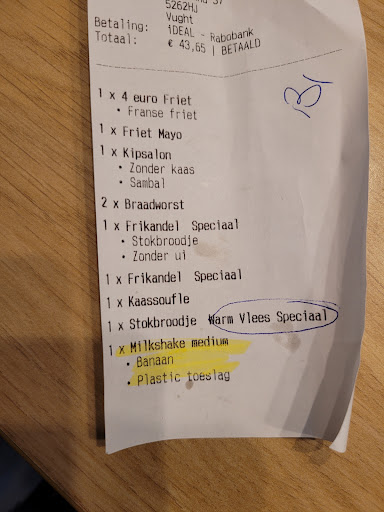 37
5262HJ
Vught
Betaling: iDEAL - Rabobank
Totaal: € 43,65 | BETAALD
1 x 4 euro Friet
• Franse friet
1 x Friet Mayo
1 x Kipsalon
• Zonder kaas
• Sambal
2 x Braadworst
1 x Frikandel Speciaal
• Stokbroodje
• Zonder ui
1 x Frikandel Speciaal
1 x Kaassoufle
1 x Stokbroodje Warm Vlees Speciaal
1 x Milkshake medium
• Banaan
• Plastic toeslag